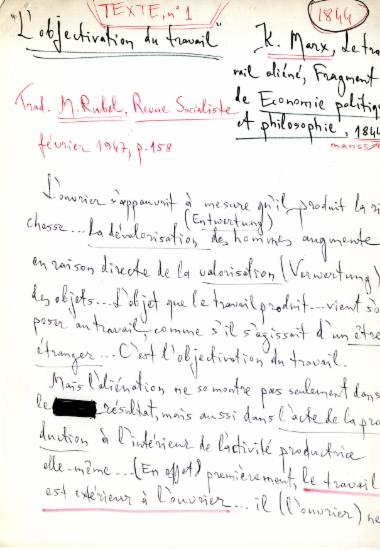 TEXTE, n° 1
1844
"L'objectivation du travail"
K. Marx, Le tra
vail aliéné, Fragment
de Economie politiqu
et philosophie, 184
manss
Trad. M. Rubel, Revue Socialiste
février 1947, p. 158
L'ouvrier s'appauvrit à mesure qu'il produit la ri
(Entwertung)
chesse... La dévalorisation des hommes augmente
en raison directe de la valorisation (Verwertung)
des objets... L'objet que le travail produit... vient s'o
poser au travail, comme s'il s'agissait d'un être
étranger... C'est l'objectivation du travail.
Mais l'aliénation ne se montre pas seulement dans
le résultat, mais aussi dans l'acte de la pro
duction à l'intérieur de l'activité productrice
elle-même... (En effet) premièrement, le travail
est extérieur à l'ouvrier... il (l'ouvrier) ne